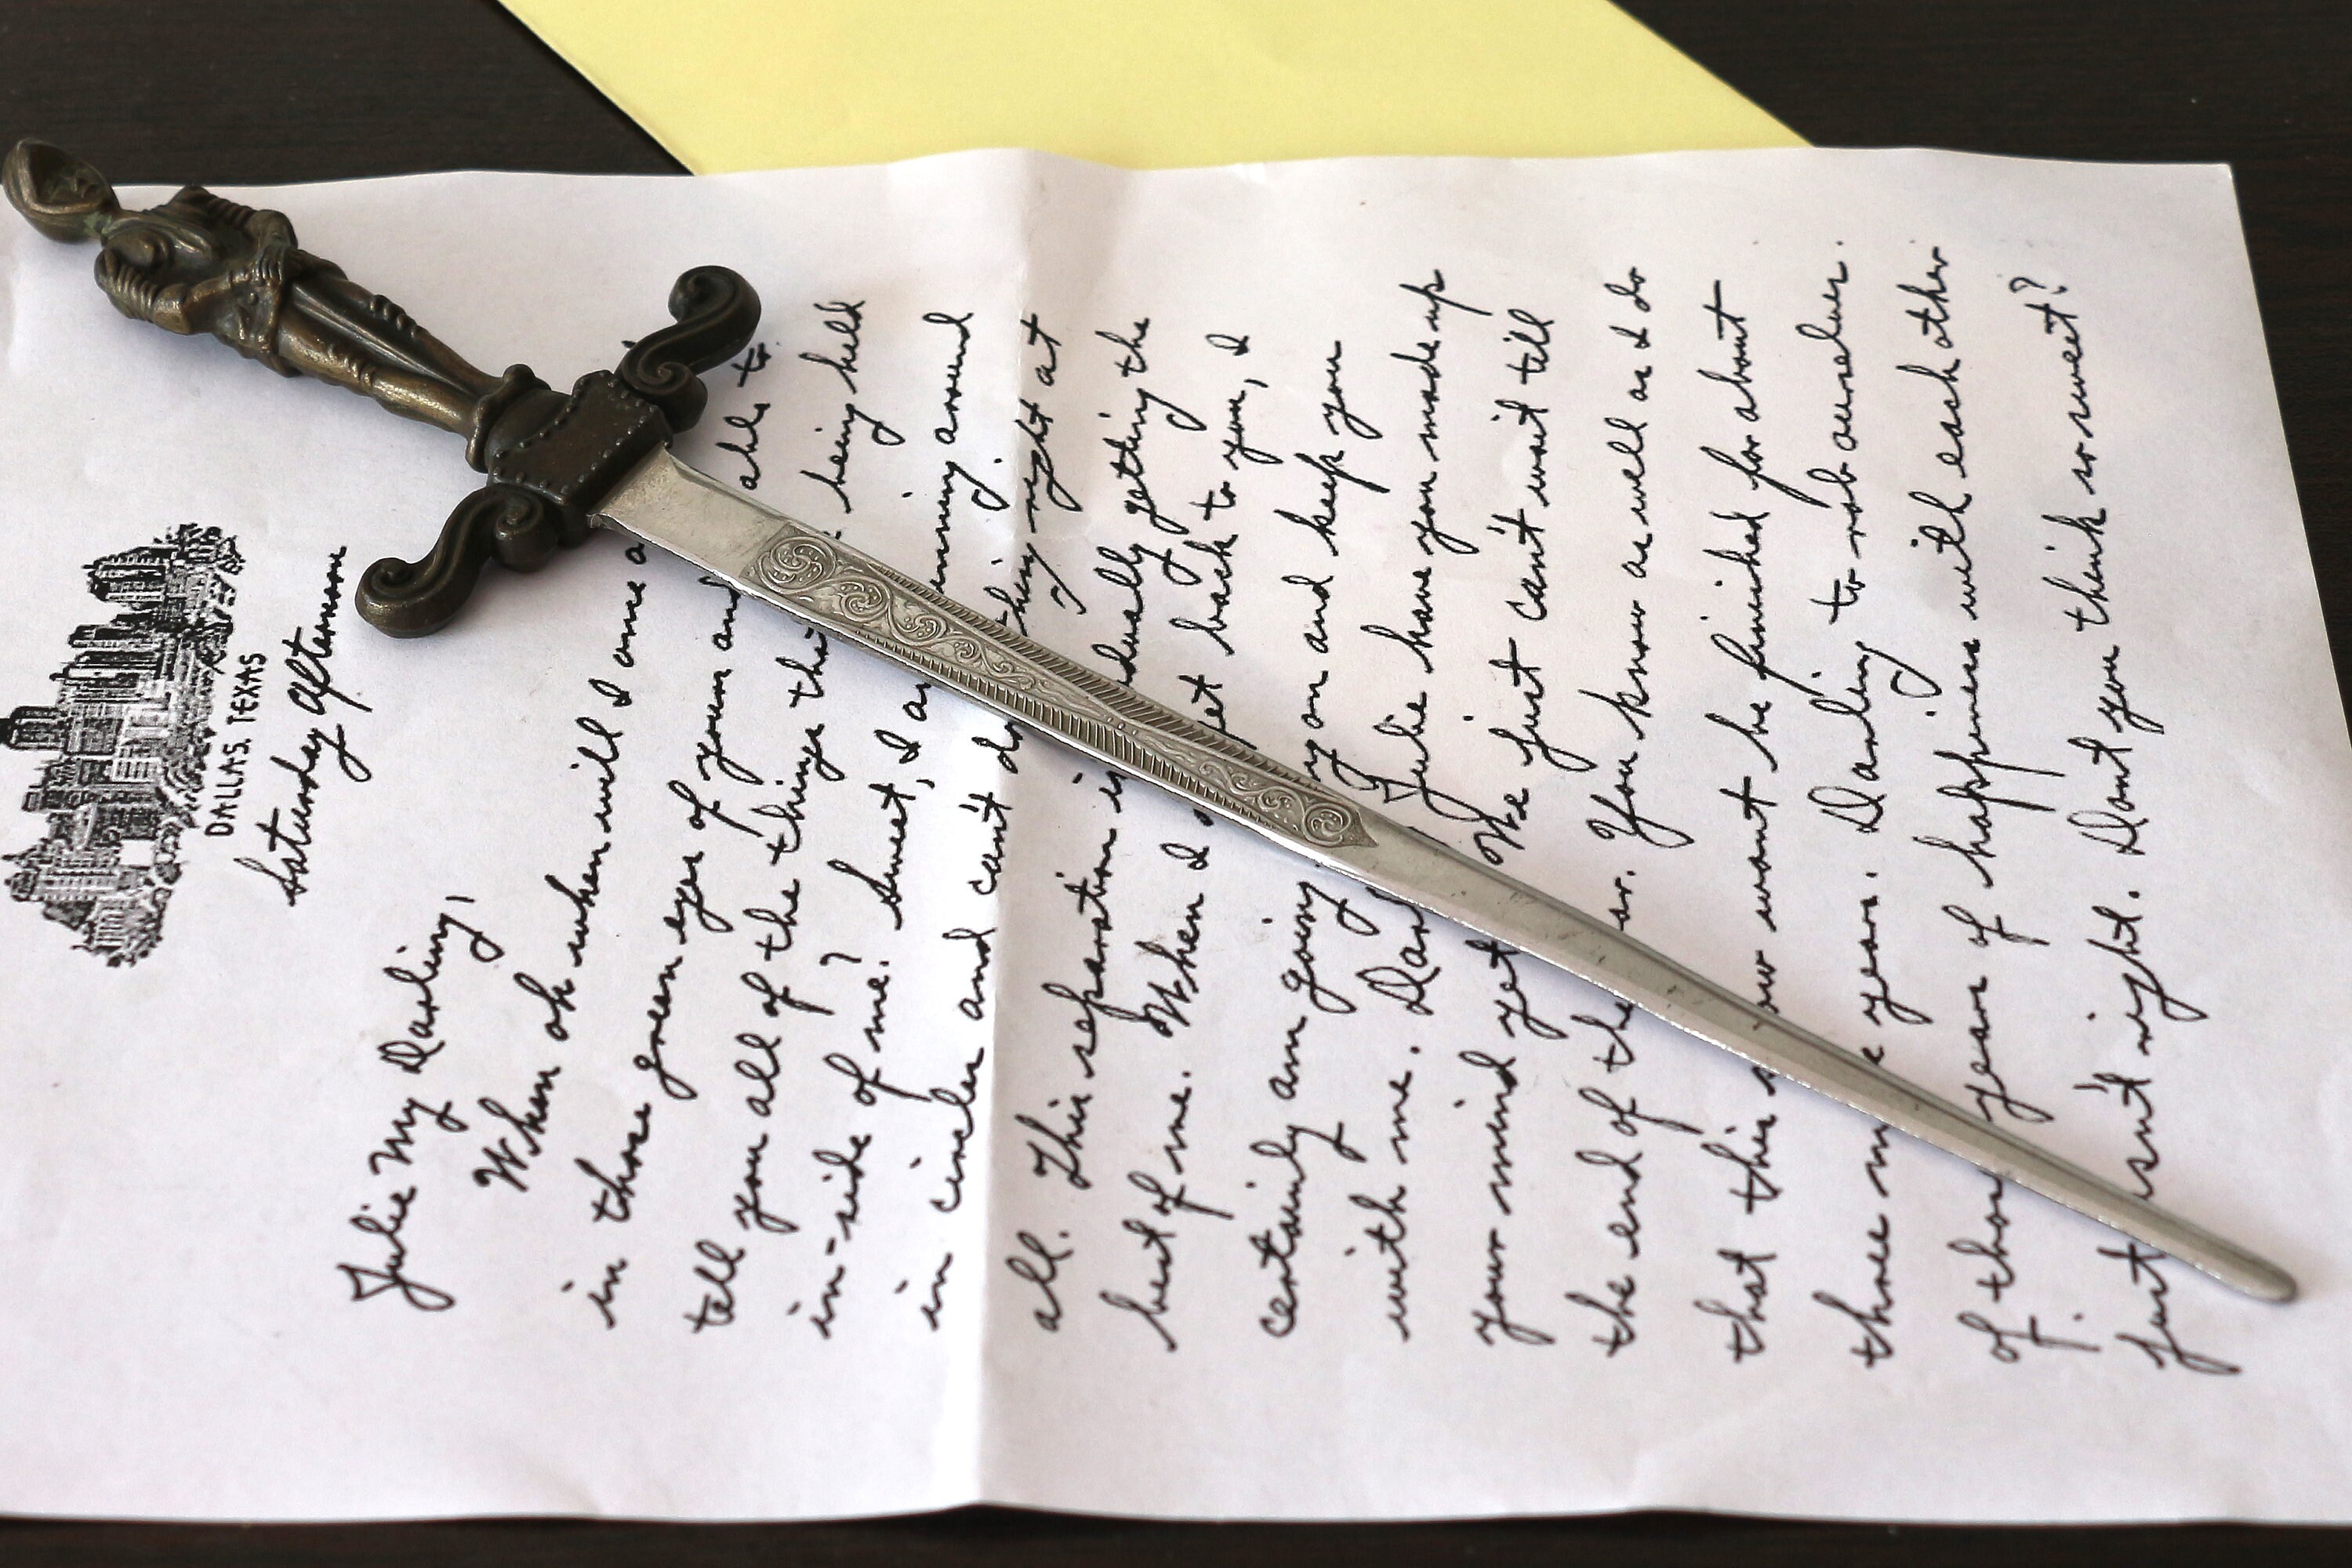 DALLAS, TEXAS
Saturday Afternoon
Julie My Darling,
When oh when will I once a able to
in those green eyes of yours and
tell you all of the things tha being held
in-side of me? Sweet, I a running around
in circles and can't do thing right at
all. This separation is dually getting the
best of me. When I get back to you, I
certainly am going y on and keep you
with me. Dar Julie have you made up
your mind yet We just can't wait till
the end of the ar. You know as well as I do
that this war wont be finished for about
three m e years. Darling to rob ourselves
of those years of happiness with each other
just isn't right. Dont you think so sweet?